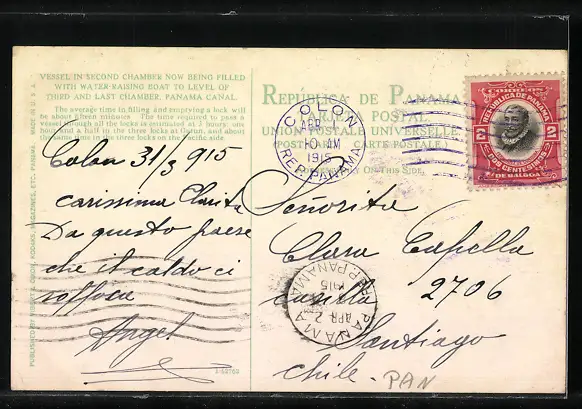 VESSEL IN SECOND CHAMBER NOW BEING FILLED
WITH WATER-RAISING BOAT TO LEVEL OF
THIRD AND LAST CHAMBER, PANAMA CANAL.
The average time in filling and emptying a lock will
be about fifteen minutes. The time required to pass a
vessel through all the locks is estimated at 3 hours; one
hour and a half in the three locks at Gatun, and about
the same time in the three locks on the Pacific side.
Colon 31/3 915
carissima Clarita
Da questo paese
che il caldo ci
soffoca
Angel
MADE IN U.S.A.
1-52762
REPÚBLICA DE PANAMÁ
TARJETA POSTAL
UNION POSTALE UNIVERSELLE
(POSTKARTE CARTE POSTALE.)
ON THIS SIDE.
COLON
APR
10 AM
1915
REP. PANAMA
CORREOS
REPUBLICA DE PANAMA
2 2
DOS CENTESIMOS
DE BALBOA
Señorita
Clara Capella
casilla 2706
Santiago
Chile.
PANAMA
APR 2
1915
REP. PANAMA
PAN